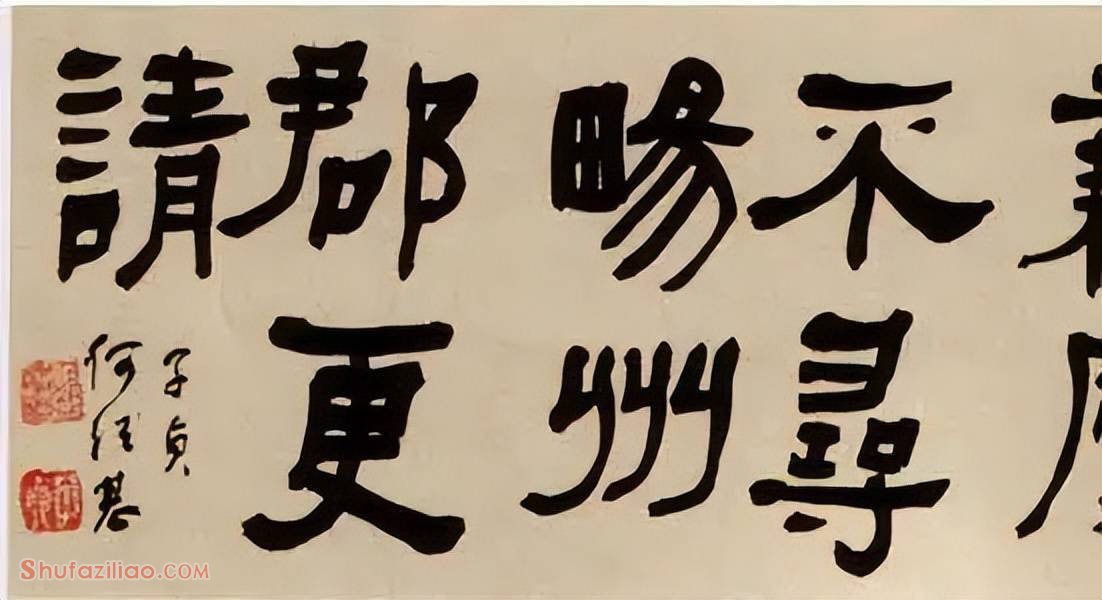 不尋
畼州
郡更
請
子貞
何紹基
Shufaziliao.COM